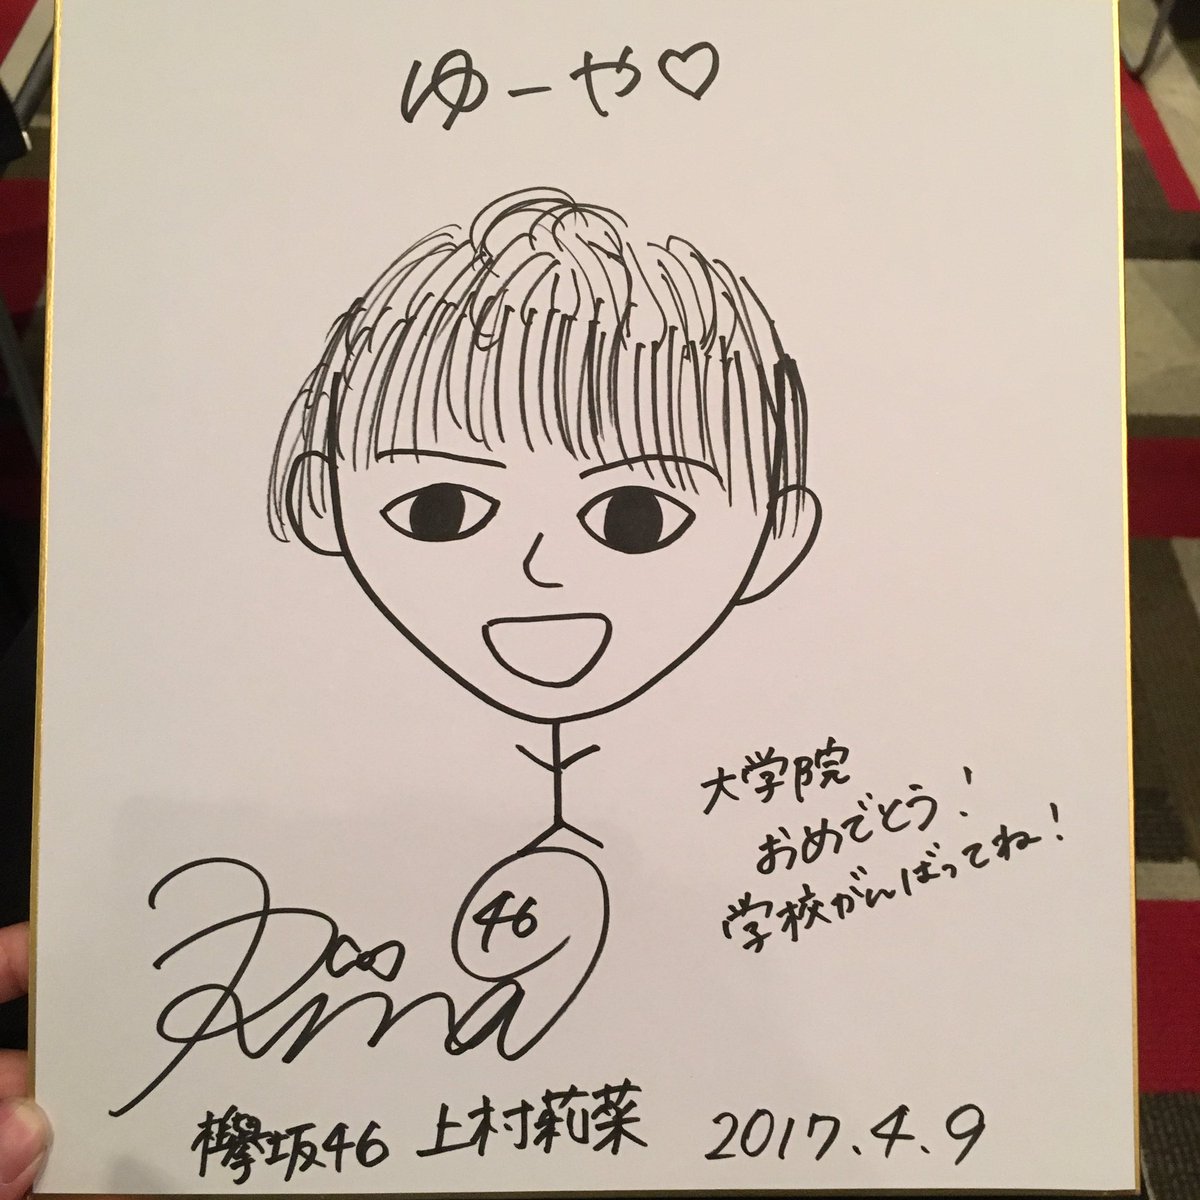 ゆーや♡
大学院
おめでとう!
学校がんばってね!
46
Rina
欅坂46 上村莉菜 2017.4.9